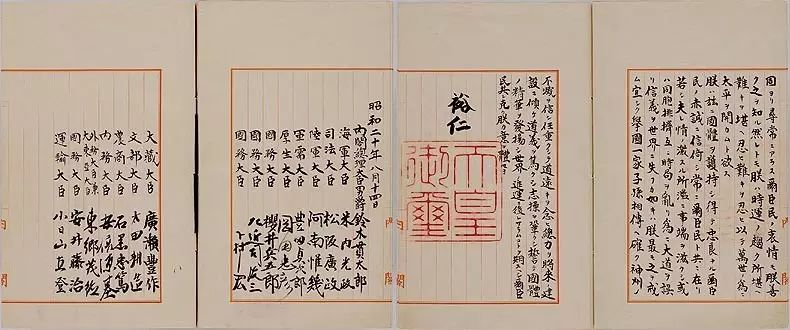 固ヨリ尋常ニアラス爾臣民ノ衷情モ朕善
ク之ヲ知ル然レトモ朕ハ時運ノ趨ク所堪ヘ
難キヲ堪ヘ忍ヒ難キヲ忍ヒ以テ萬世ノ為ニ
太平ヲ開カムト欲ス
朕ハ茲ニ國體ヲ護持シ得テ忠良ナル爾臣
民ノ赤誠ニ信倚シ常ニ爾臣民ト共ニ在リ
若シ夫レ情ノ激スル所濫ニ事端ヲ滋クシ或
ハ同胞排擠互ニ時局ヲ亂リ為ニ大道ヲ誤
リ信義ヲ世界ニ失フカ如キハ朕最モ之ヲ戒
ム宜シク擧國一家子孫相傳ヘ確ク神州ノ
不滅ヲ信シ任重クシテ道遠キヲ念ヒ總力ヲ將來ノ建
設ニ傾ケ道義ヲ篤クシ志操ヲ鞏クシ誓テ國體
ノ精華ヲ發揚シ世界ノ進運ニ後レサラムコトヲ期スヘシ爾臣
民其レ克ク朕カ意ヲ體セヨ
裕仁
天皇
御璽
昭和二十年八月十四日
内閣總理大臣男爵鈴木貫太郎
海軍大臣 米内光政
司法大臣 松阪廣政
陸軍大臣 阿南惟幾
軍需大臣 豊田貞次郎
厚生大臣 岡田忠彦
國務大臣 櫻井兵五郎
國務大臣 左近司政三
國務大臣 下村宏
大藏大臣 廣瀬豊作
文部大臣 太田耕造
農商大臣 石黒忠篤
内務大臣 安倍源基
外務大臣兼大東亞大臣 東郷茂徳
國務大臣 安井藤治
運輸大臣 小日山直登